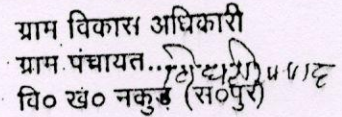 ग्राम विकास अधिकारी
ग्राम पंचायत...
वि० खं० नकुड़ (स०पुर)